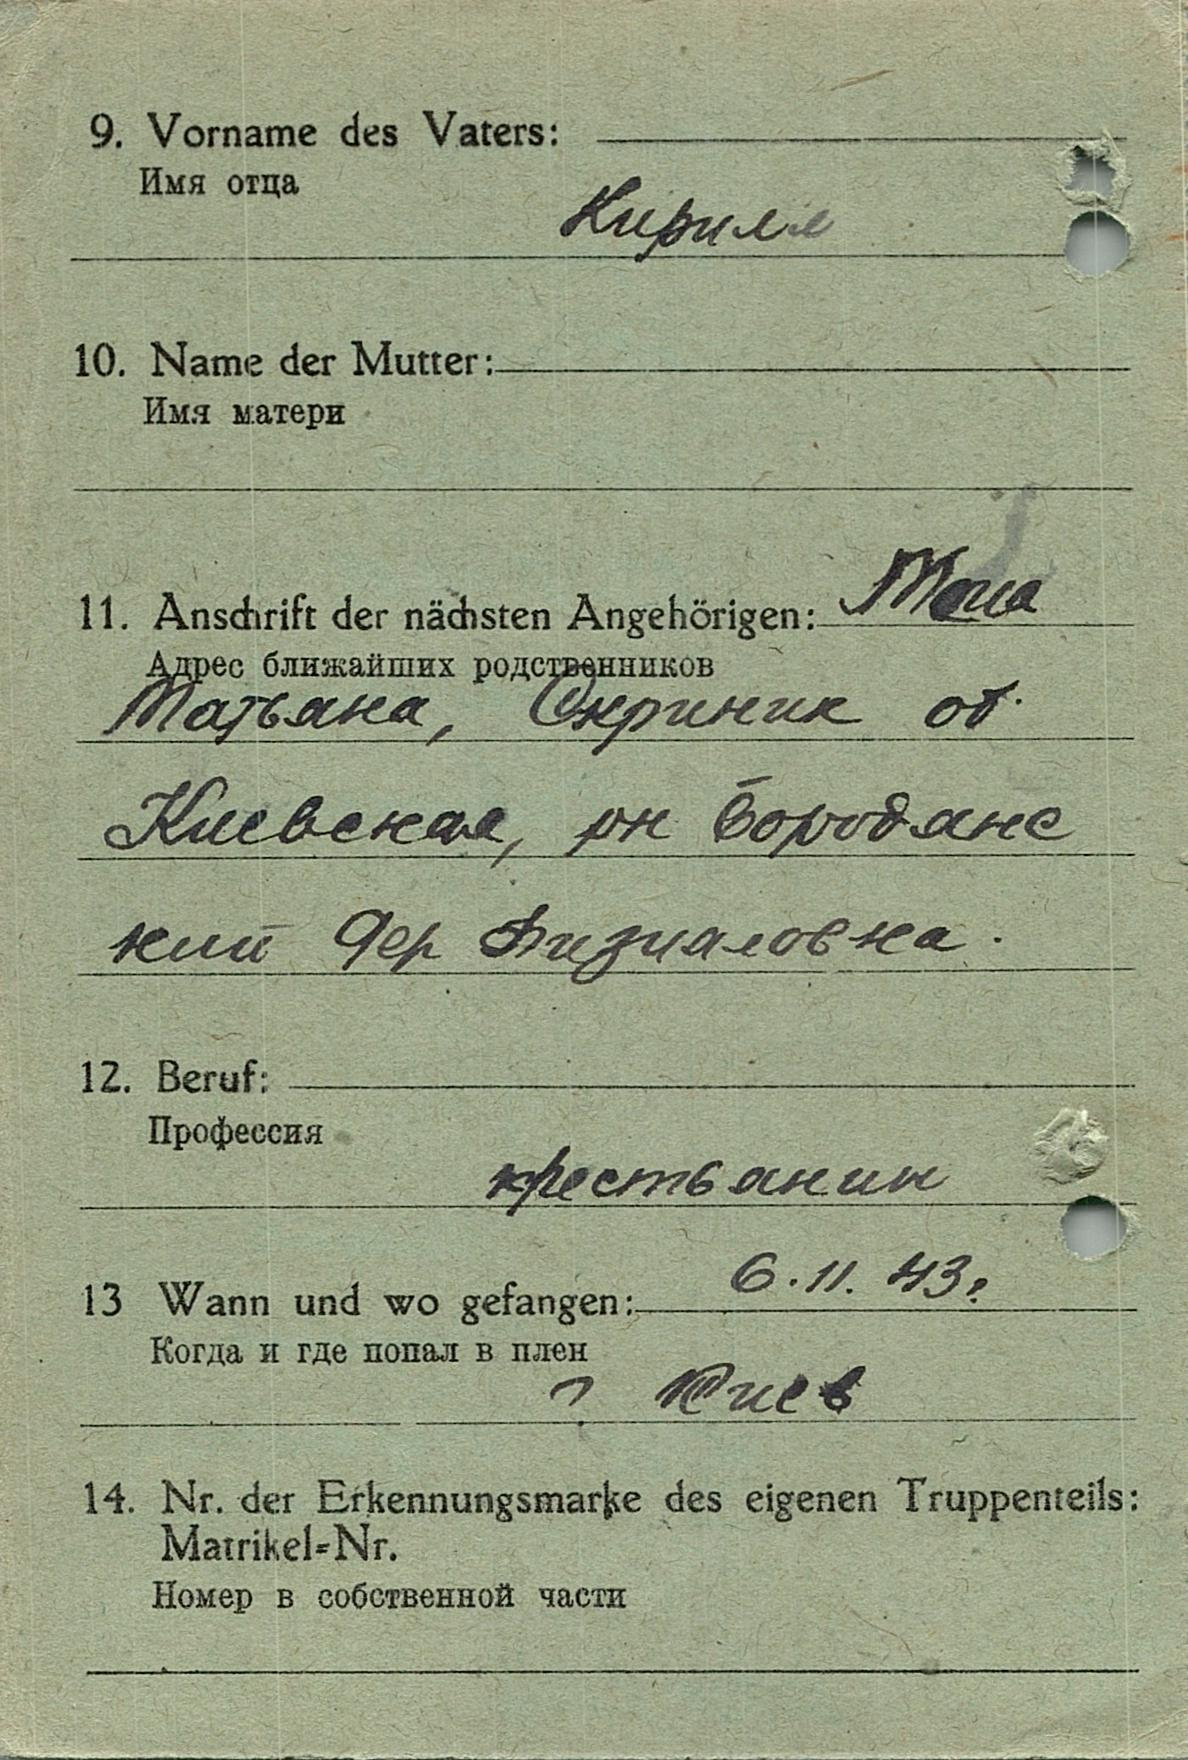 9. Vorname des Vaters:
Имя отца
Кирилл
10. Name der Mutter:
Имя матери
11. Anschrift der nächsten Angehörigen:
Адрес ближайших родственников
Татьяна, Скриник об.
Киевская, рн Бородянс
кий дер
12. Beruf:
Профессия
крестьянин
13 Wann und wo gefangen: 6.11.43г
Когда и где попал в плен
? Киев
14. Nr. der Erkennungsmarke des eigenen Truppenteils:
Matrikel-Nr.
Номер в собственной части